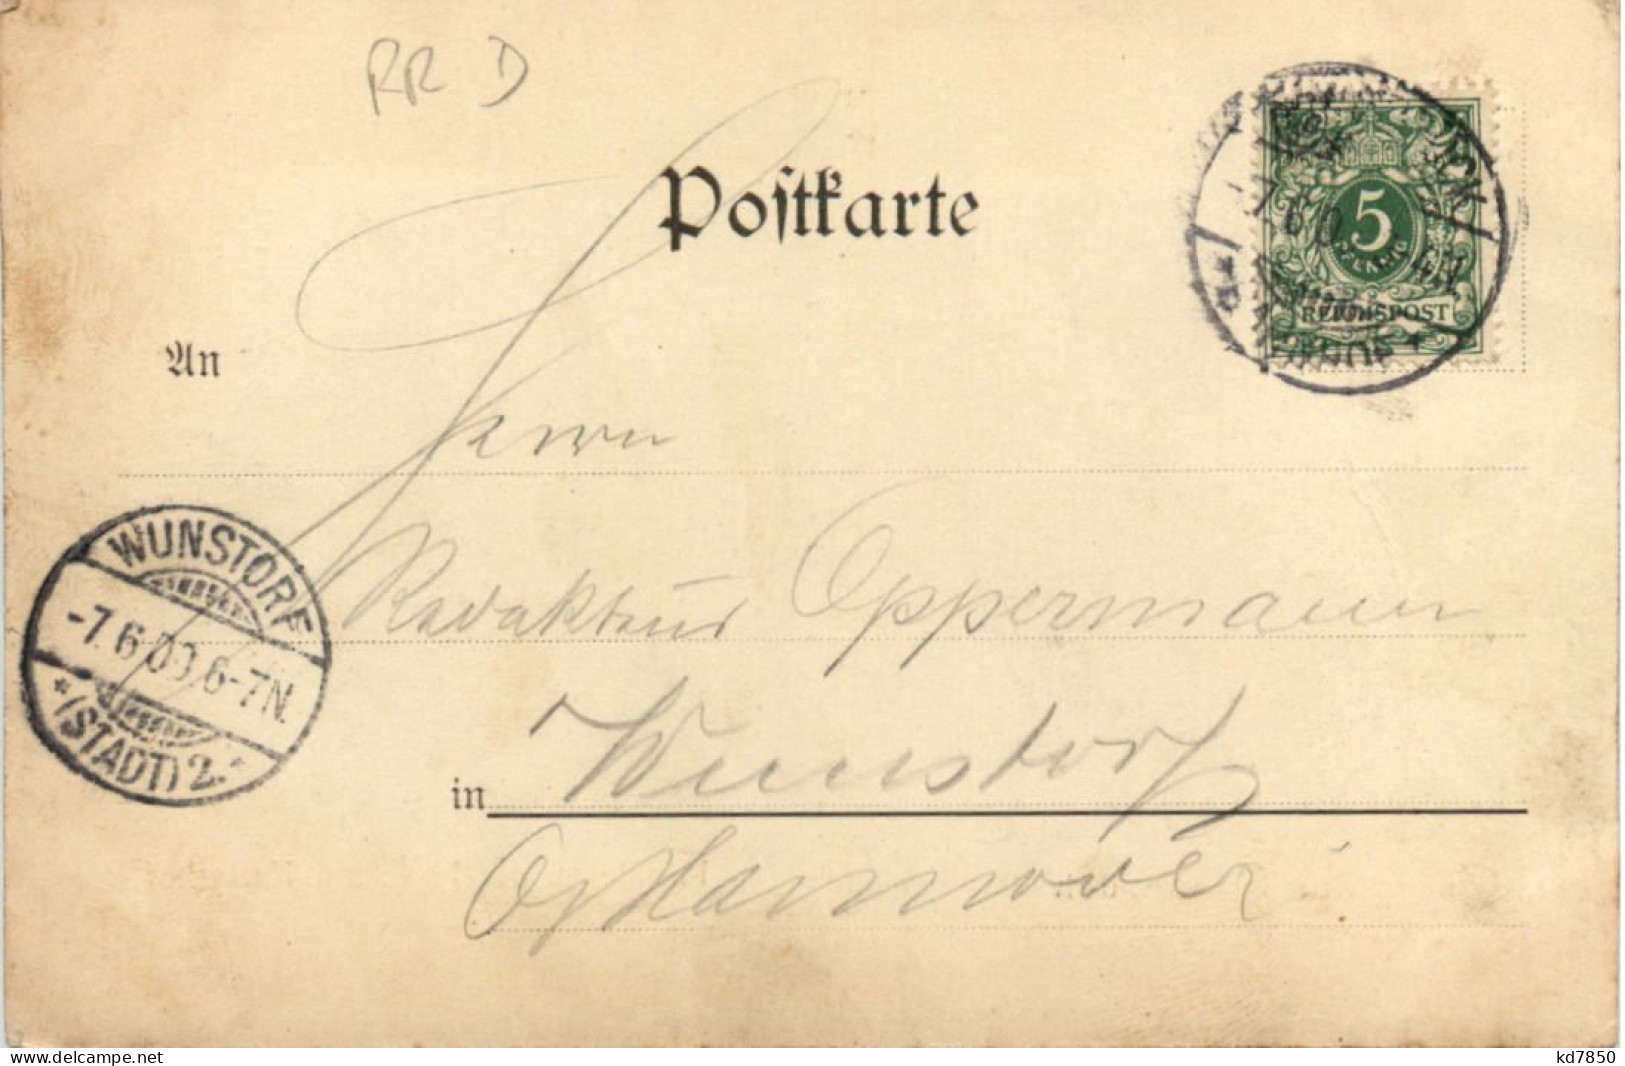 RR D
Postkarte
5
PFENNIG
REICHSPOST
An
Herrn
Redakteur Oppermann
WUNSTORF
-7.6.00.6-7N.
*(STADT)2.*
in Wunstorf
Hannover
delcampe.net
kd7850